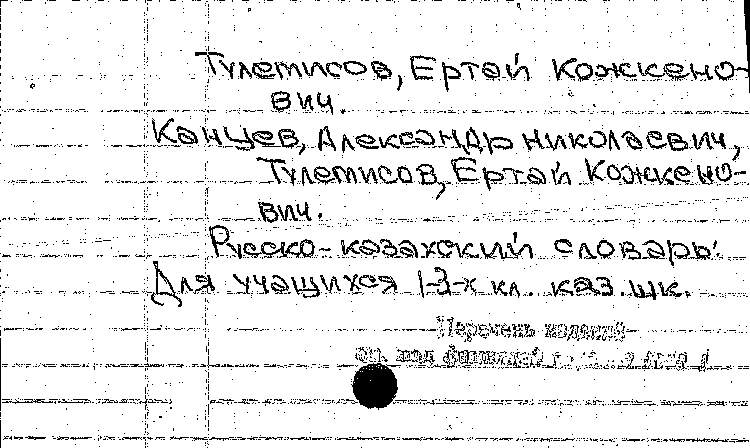 Тулемисов, Ертай Кожкено-
вич.
Канцев, Александр Николаевич,
Тулемисов, Ертай Кожкено-
вич.
Русско-казахский словарь:
Для учащихся 1-3-х кл. каз. шк.
Перечень изданий
см. под фамилией